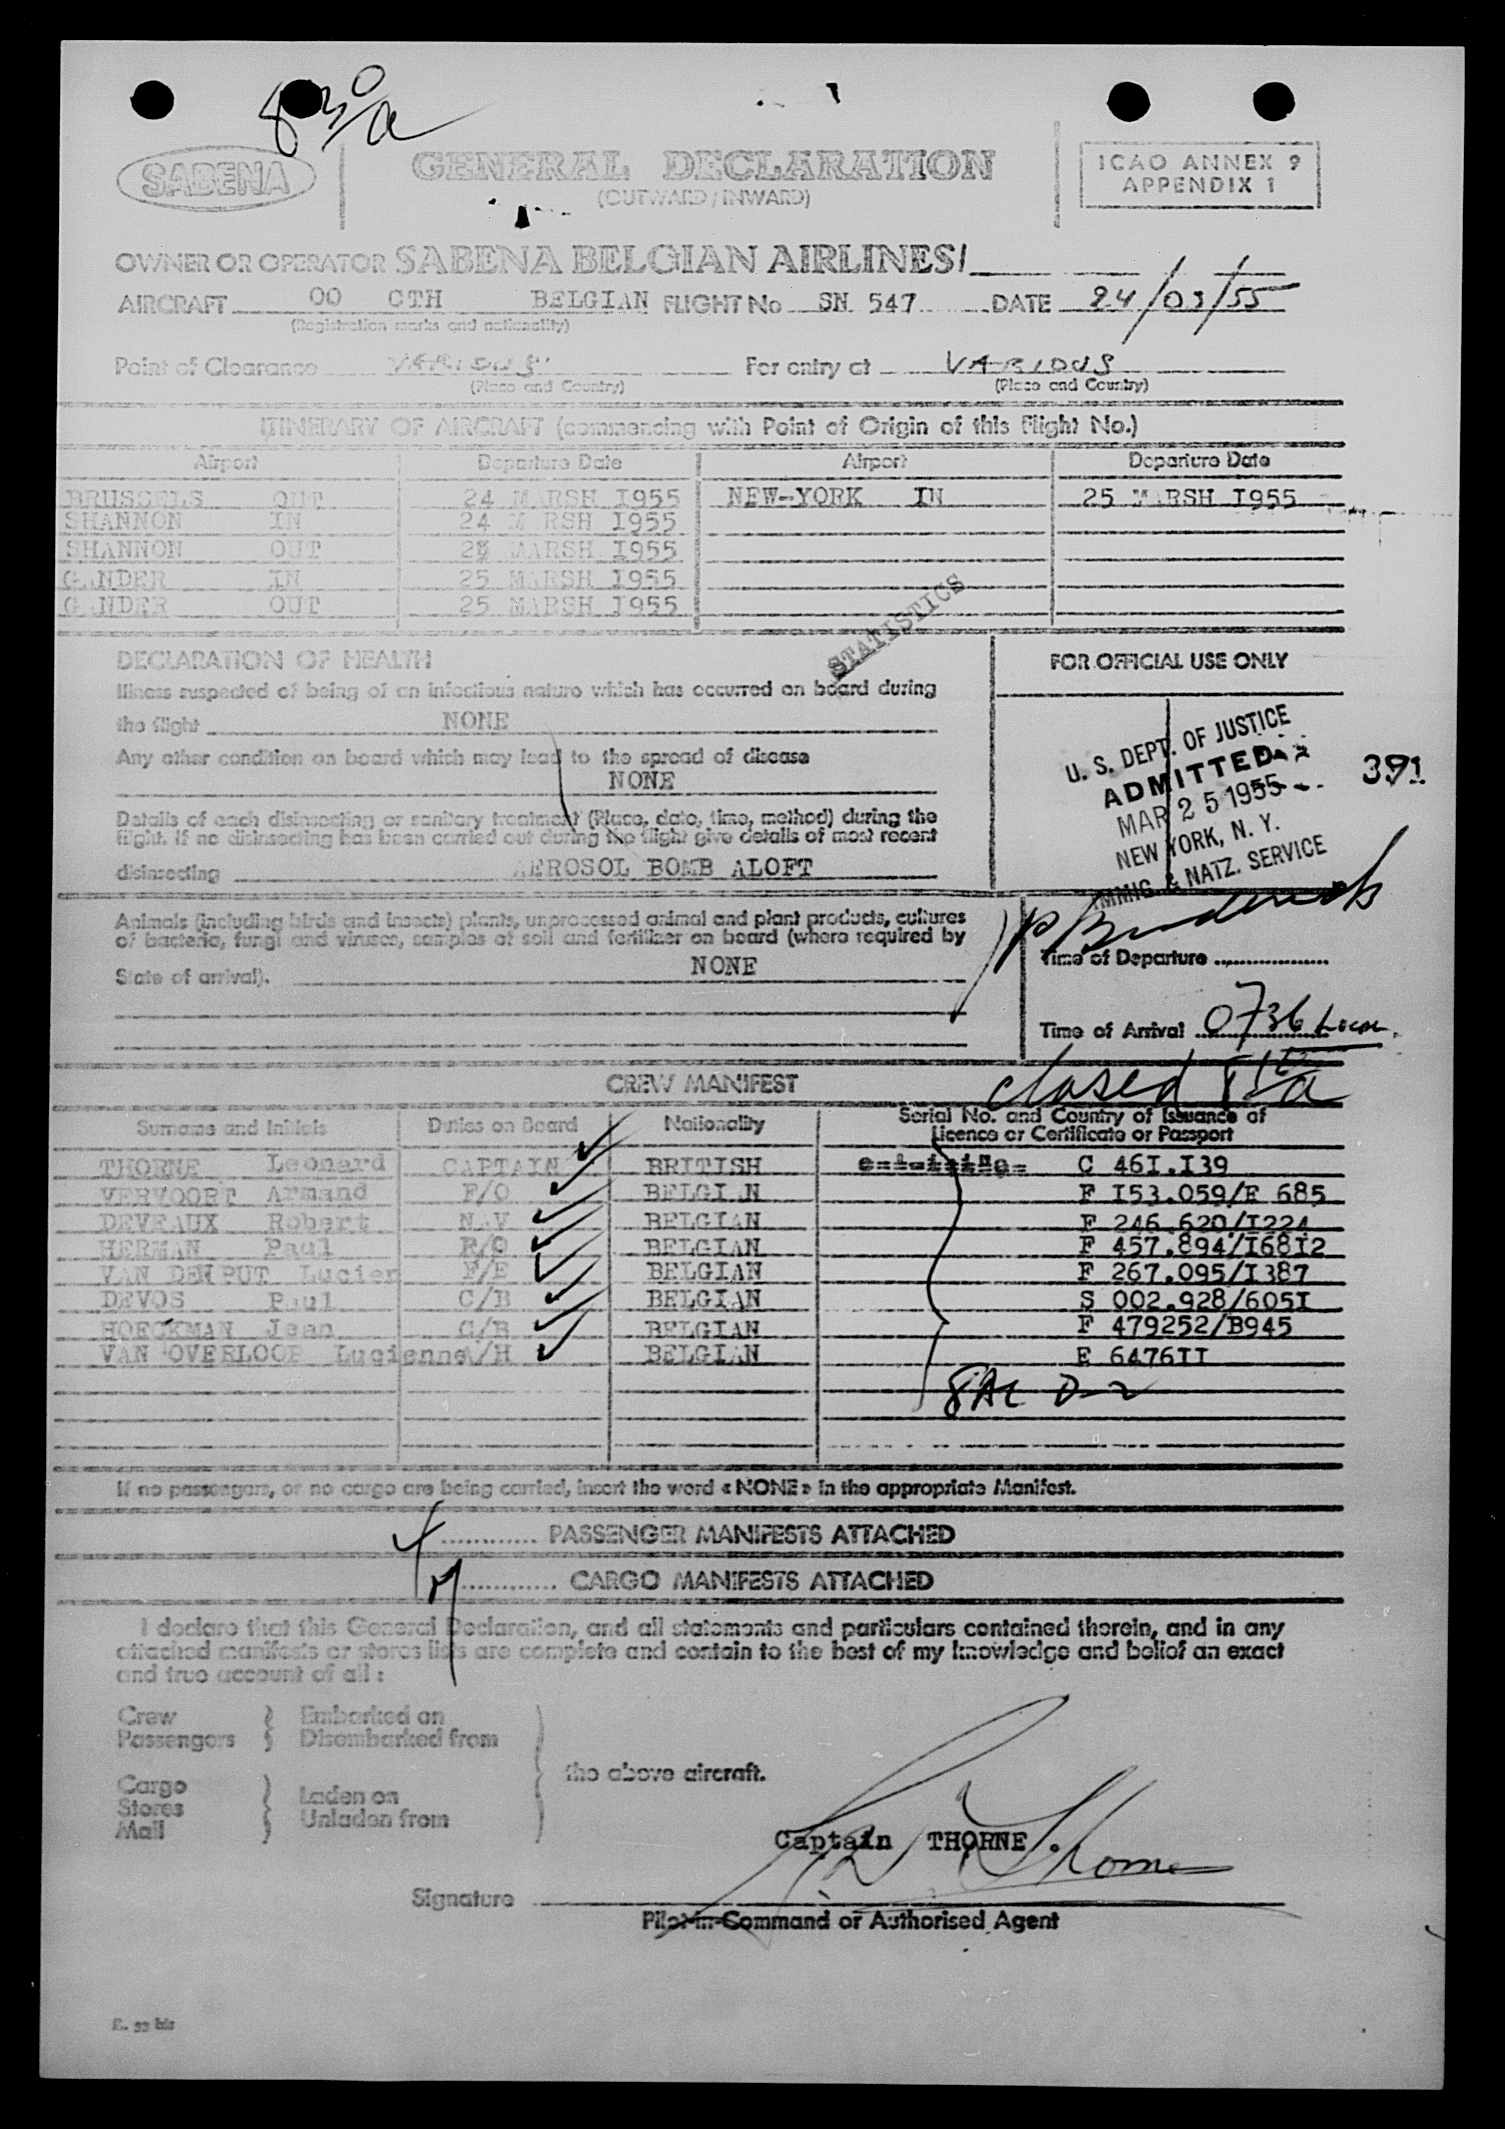 8 30/a
SABENA
GENERAL DECLARATION
(OUTWARD / INWARD)
ICAO ANNEX 9
APPENDIX 1
OWNER OR OPERATOR SABENA BELGIAN AIRLINES/
AIRCRAFT OO CTH BELGIAN FLIGHT No SN 547 DATE 24/03/55
(Registration marks and nationality)
Point of Clearance VARIOUS For entry at VARIOUS
(Place and Country) (Place and Country)
ITINERARY OF AIRCRAFT (commencing with Point of Origin of this Flight No.)
Airport Departure Date Airport Departure Date
BRUSSELS OUT 24 MARSH I955 NEW-YORK IN 25 MARSH I955
SHANNON IN 24 MARSH I955
SHANNON OUT MARSH I955
GANDER IN 25 MARSH I955
GANDER OUT 25 MARSH I955
STATISTICS
DECLARATION OF HEALTH
Illness suspected of being of an infectious nature which has occurred on board during
the flight NONE
Any other condition on board which may lead to the spread of disease
NONE
Details of each disinsecting or sanitary treatment (Place, date, time, method) during the
flight. If no disinsecting has been carried out during the flight give details of most recent
disinsecting AEROSOL BOMB ALOFT
FOR OFFICIAL USE ONLY
U. S. DEPT. OF JUSTICE
ADMITTED
MAR 25 1955
NEW YORK, N. Y.
IMMIG. & NATZ. SERVICE
391
Animals (including birds and insects) plants, unprocessed animal and plant products, cultures
of bacteria, fungi and viruses, samples of soil and fertilizer on board (where required by
State of arrival). NONE
Time of Departure
Time of Arrival 0736 Local
closed
CREW MANIFEST
Surname and Initials Duties on Board Nationality Serial No. and Country of Issuance of
Licence or Certificate or Passport
THORNE Leonard CAPTAIN BRITISH C 46I.I39
VERVOORT Armand F/O BELGIAN F I53.059/E 685
DEVEAUX Robert NAV BELGIAN F 246.620/I224
HERMAN Paul R/O BELGIAN F 457.894/I68I2
VAN DEN PUT Lucien F/E BELGIAN F 267.095/I387
DEVOS Paul C/B BELGIAN S 002.928/605I
HOECKMAN Jean C/B BELGIAN F 479252/B945
VAN OVERLOOP Lucienne A/H BELGIAN E 6476II
8AL D-2
If no passengers, or no cargo are being carried, insert the word « NONE » in the appropriate Manifest.
PASSENGER MANIFESTS ATTACHED
CARGO MANIFESTS ATTACHED
I declare that this General Declaration, and all statements and particulars contained therein, and in any
attached manifests or stores lists are complete and contain to the best of my knowledge and belief an exact
and true account of all :
Crew Embarked on
Passengers Disembarked from
the above aircraft.
Cargo
Stores
Mail
Laden on
Unladen from
Captain THORNE .
Signature
Pilot-in-Command or Authorised Agent